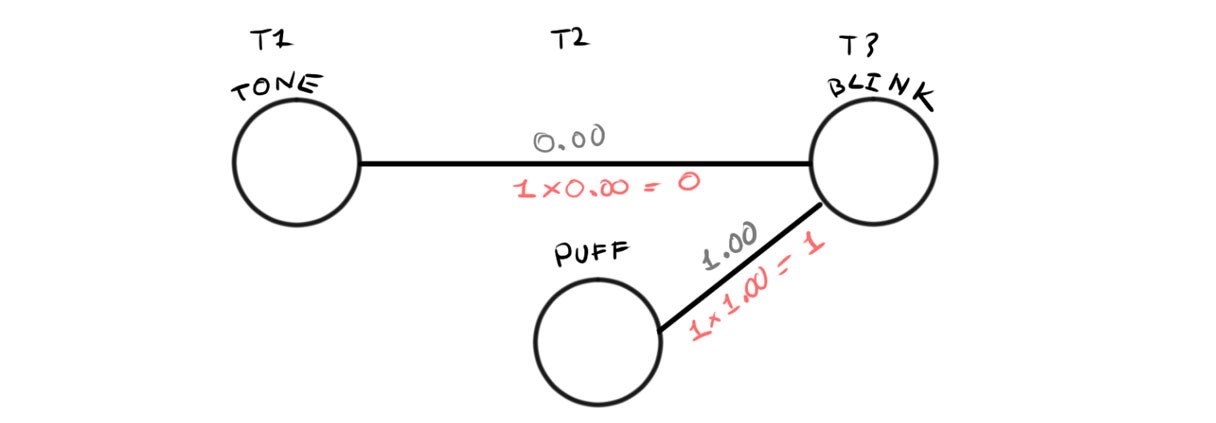 T1
T2
T3
TONE
BLINK
0.00
1×0.00 = 0
PUFF
1.00
1×1.00 = 1